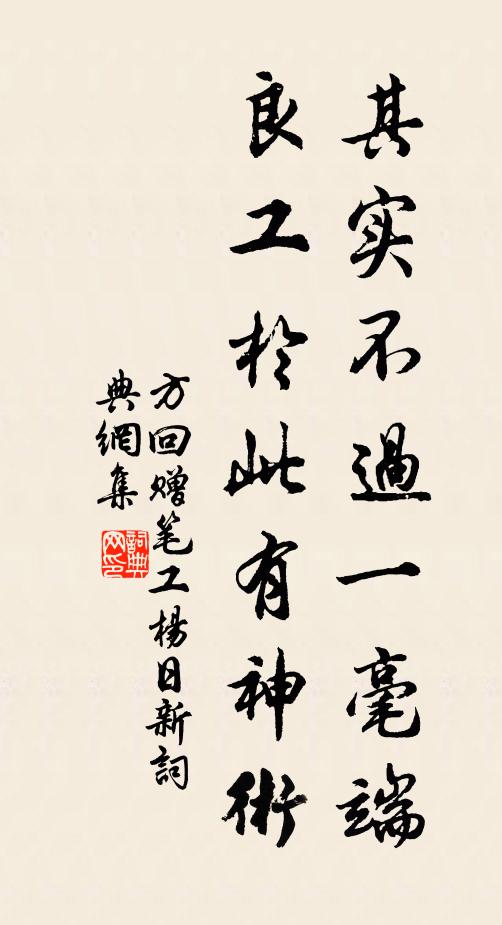 其实不過一毫端
良工於此有神術
方回赠笔工楊日新詞
典網集
詞典网印